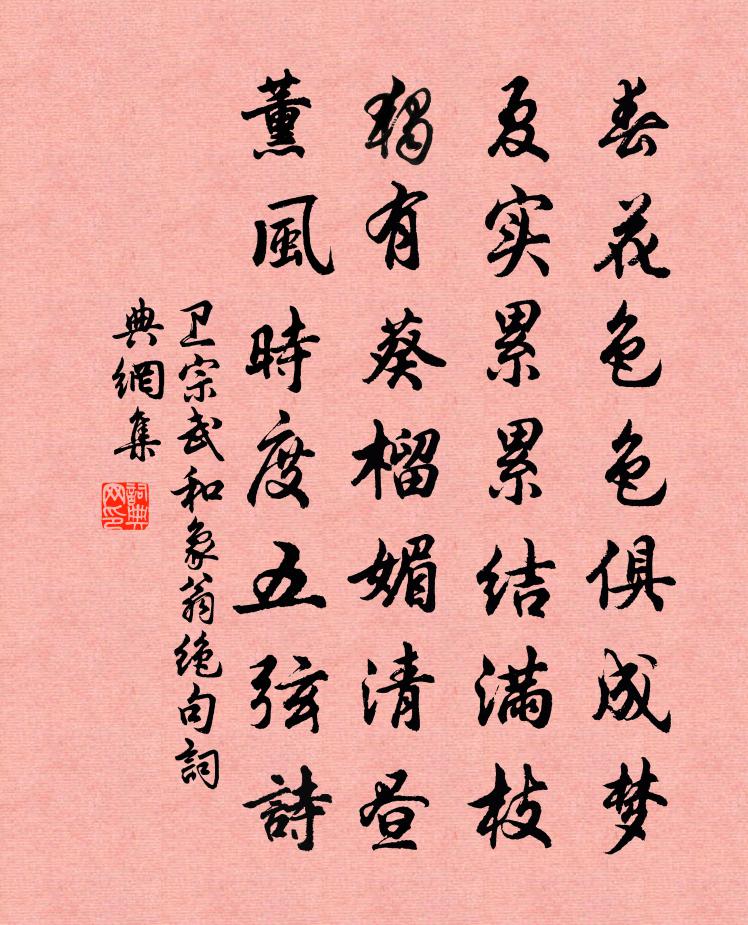 春花色色俱成梦
夏实累累结满枝
独有葵榴媚清昼
薰風時度五弦詩
卫宗武和象翁绝句詞
典網集
詞典
网印